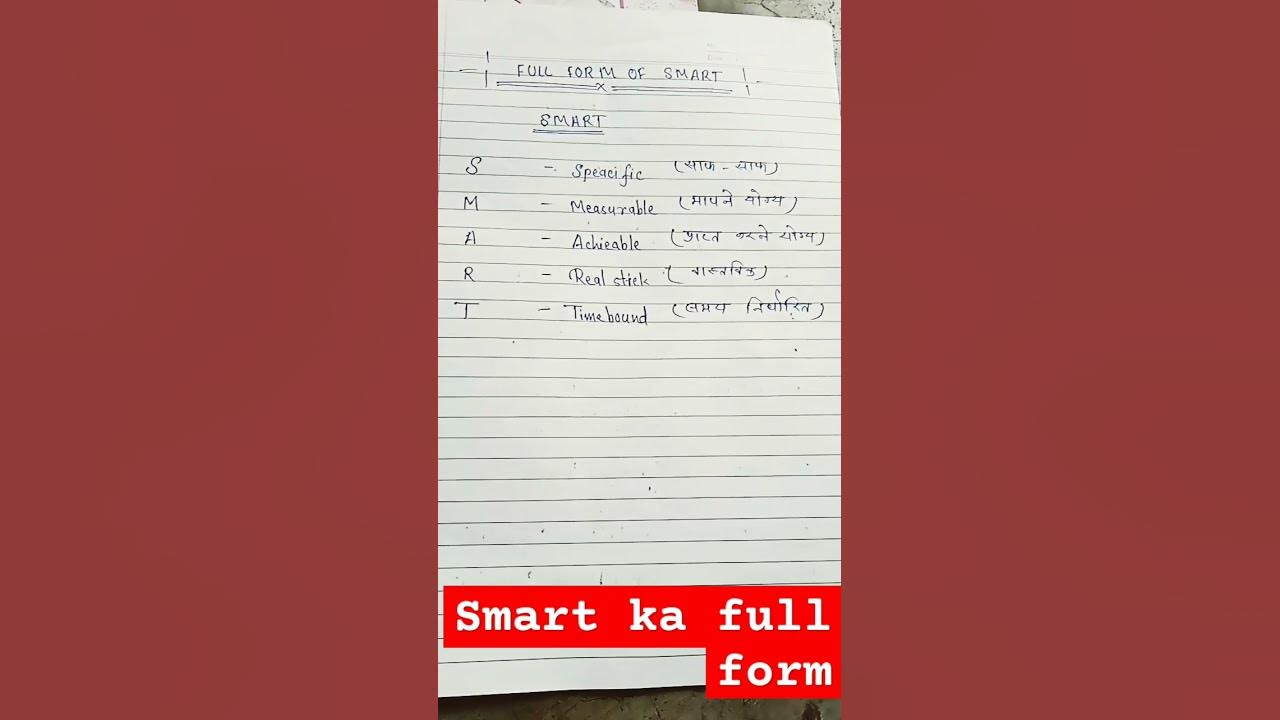 FULL FORM OF SMART
SMART
S - Speacific (साफ - साफ)
M - Measurable (मापने योग्य)
A - Achieable (प्राप्त करने योग्य)
R - Real stick (वास्तविक)
T - Timebound (समय निर्धारित)
Smart ka full
form